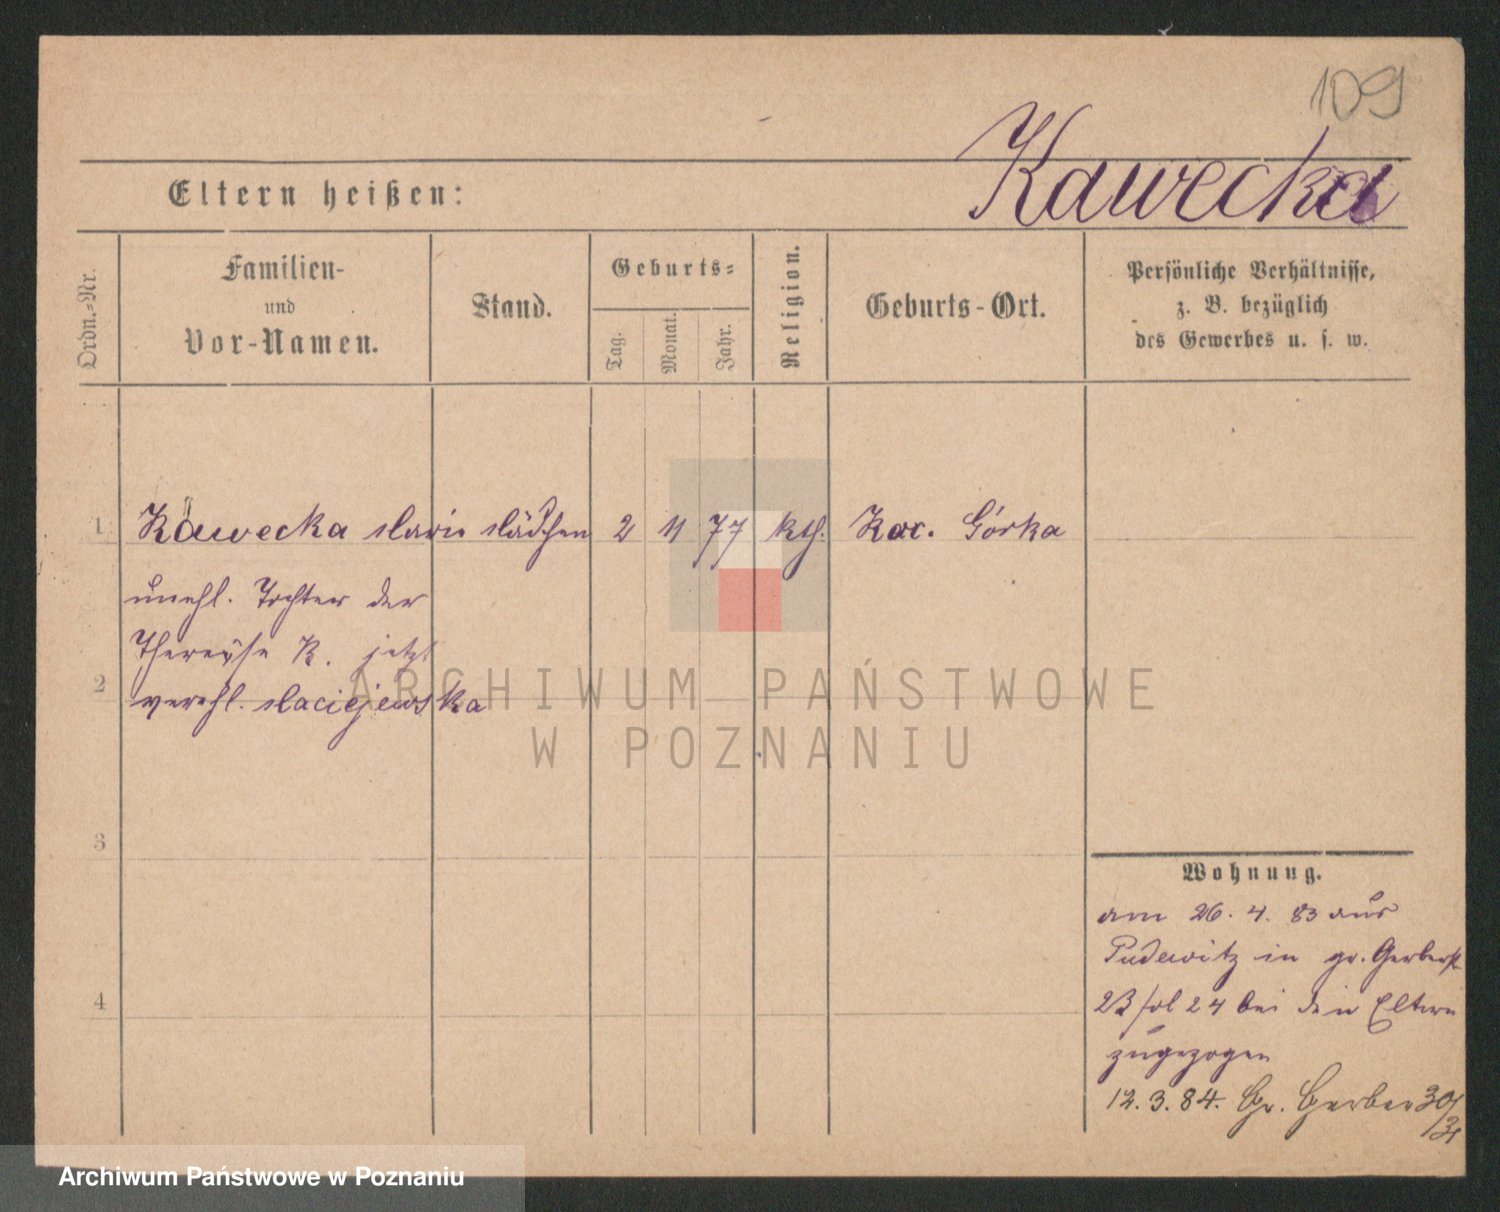 109
Kawecka
Eltern heißen:
Ordn.=Nr.
Familien-
und
Vor-Namen.
Stand.
Geburts=
Tag.
Monat.
Jahr.
Religion.
Geburts-Ort.
Persönliche Verhältnisse,
z. B. bezüglich
des Gewerbes u. s. w.
1 Kawecka Marie Mädchen 2 11 77 kth. Kac. Górka
unehl. Tochter der
Therese K. jetzt
2 verehl. Maciejewska
3
4
Wohnung.
am 26. 4. 83 aus
Pudewitz in gr. Gerberst
23 24 bei den Eltern
zugezogen
12. 3. 84. Gr. Gerber 30/31
ARCHIWUM PAŃSTWOWE
W POZNANIU
Archiwum Państwowe w Poznaniu